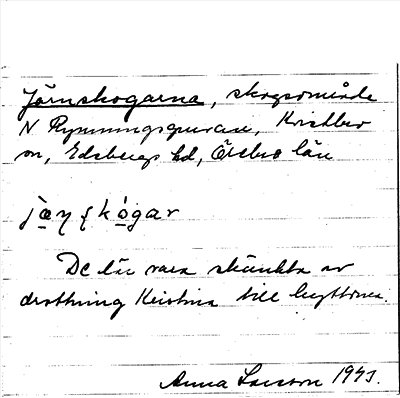 Järnskogarna, skogsområde
N Rynningsgruvan, Kvistbro
sn, Edsbergs hd, Örebro län
De lär vara skänkta av
drottning Kristina till hyttorna.
Anna Larsson 1943.